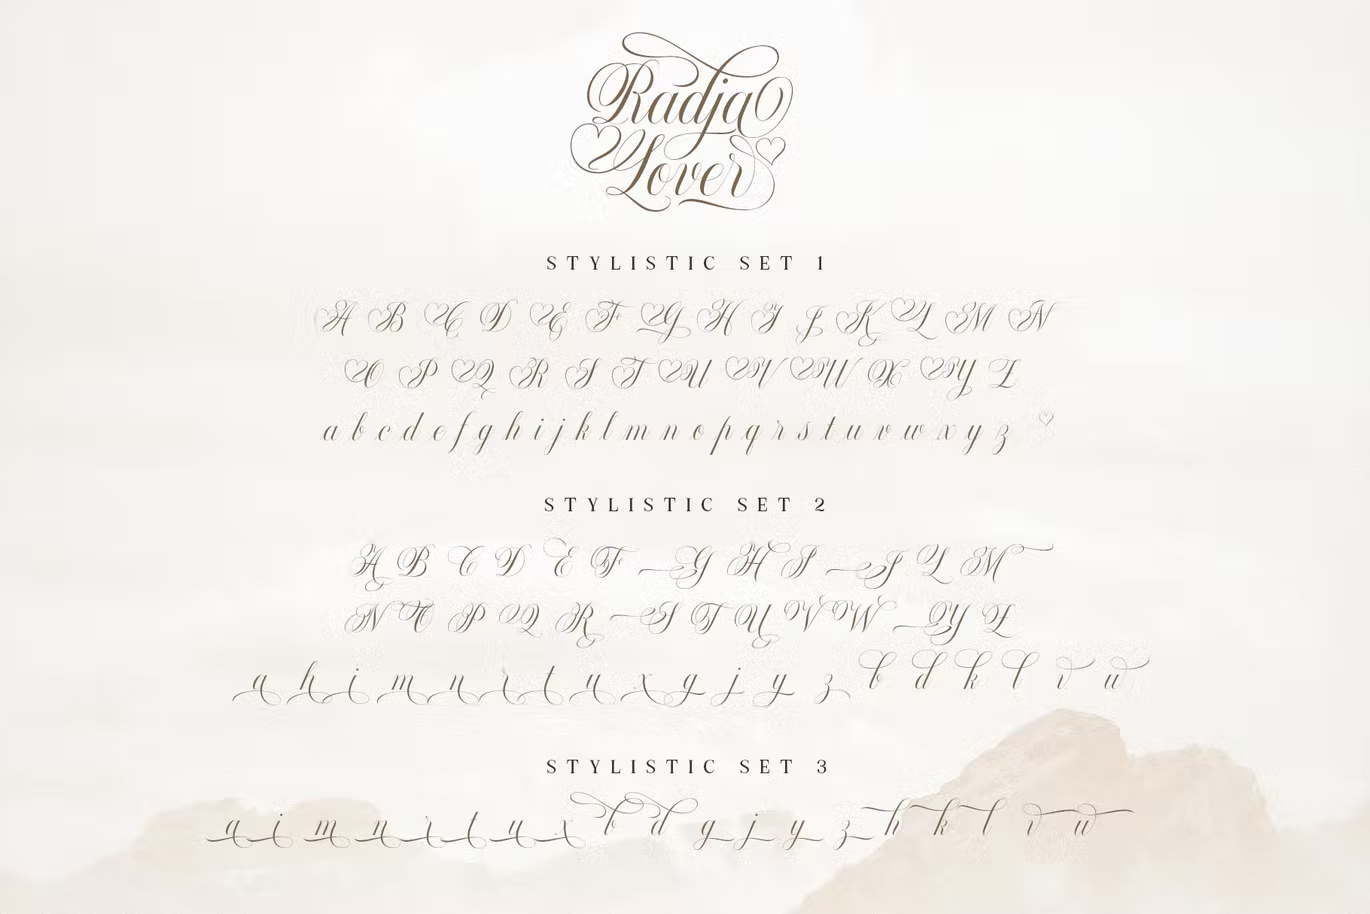 Radja
Lover
STYLISTIC SET 1
A B C D E F G H I J K L M N
O P Q R S T U V W X Y Z
a b c d e f g h i j k l m n o p q r s t u v w x y z ♡
STYLISTIC SET 2
A B C D E F G H I J L M
N O P Q R S T U V W Y Z
a h i m n r t u x g j y z b d k l v w
STYLISTIC SET 3
a i m n r t u x b d g j y z h k l v w